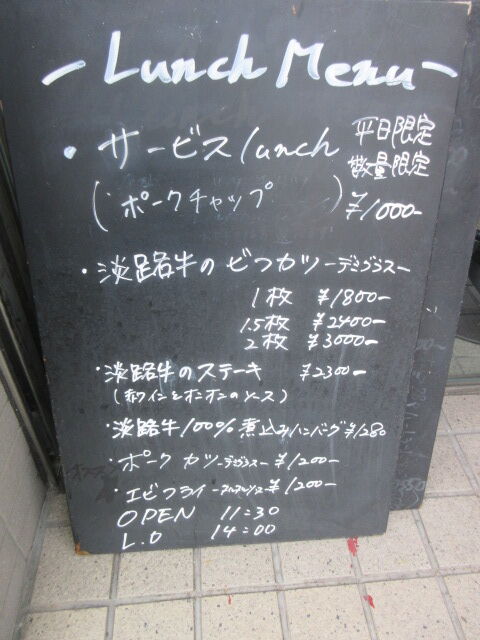 -Lunch Menu-
・サービスlunch 平日限定
数量限定
(ポークチャップ ) ¥1000-
・淡路牛のビフカツ -デミグラス-
1枚 ¥1800-
1.5枚 ¥2400-
2枚 ¥3000-
・淡路牛のステーキ ¥2300-
(赤ワインとオニオンのソース)
・淡路牛100%煮込みハンバーグ ¥1280
・ポークカツ -デミグラス- ¥1200-
・エビフライ ¥1200-
OPEN 11:30
L.O 14:00